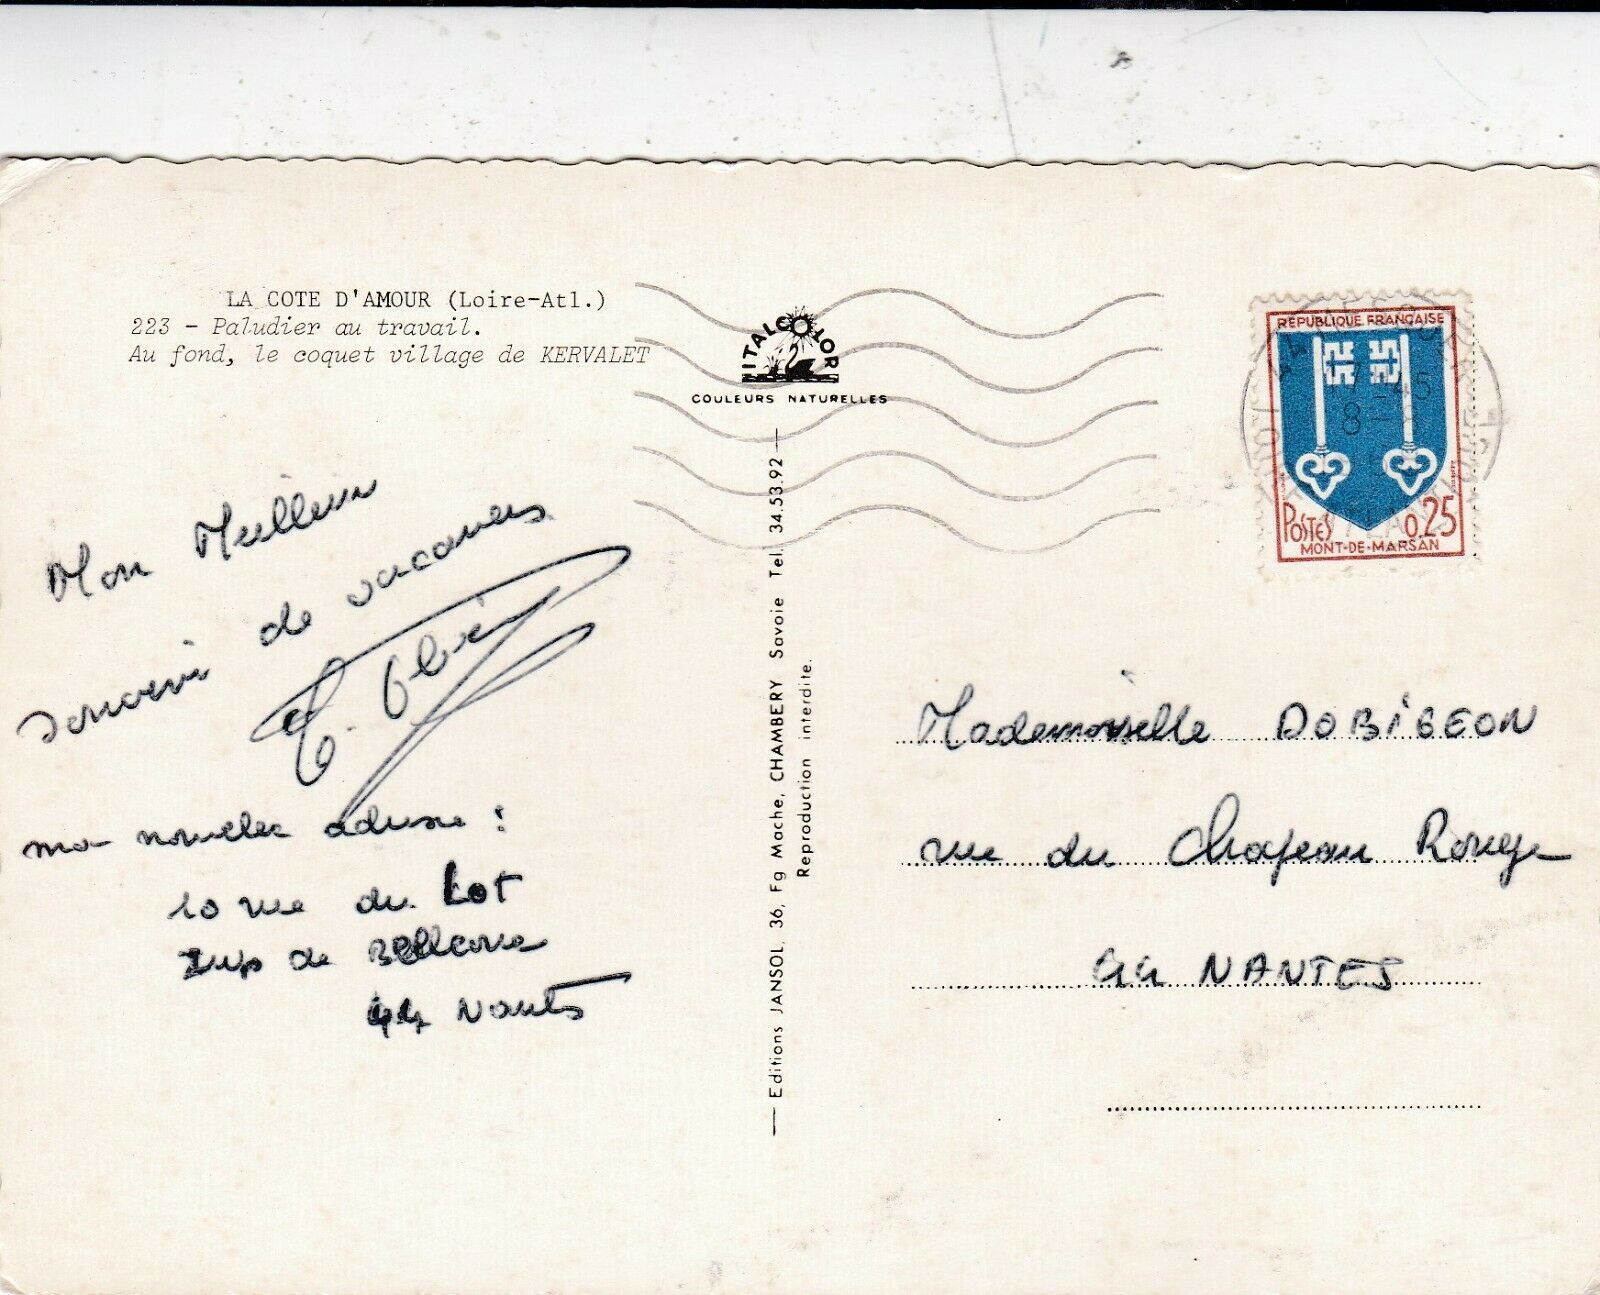 LA COTE D'AMOUR (Loire-Atl.)
223 - Paludier au travail.
Au fond, le coquet village de KERVALET
ITALCOLOR
COULEURS NATURELLES
RÉPUBLIQUE FRANÇAISE
POSTES 0,25
MONT-DE-MARSAN
Mon Meilleur
souvenir de vacances
ma nouvelle adresse :
10 rue du Lot
Zup de Bellevue
44 Nantes
— Editions JANSOL, 36, Fg Mache, CHAMBERY Savoie Tel. 34.53.92 —
Reproduction interdite.
Mademoiselle DOBIGEON
rue du Chapeau Rouge
44 NANTES